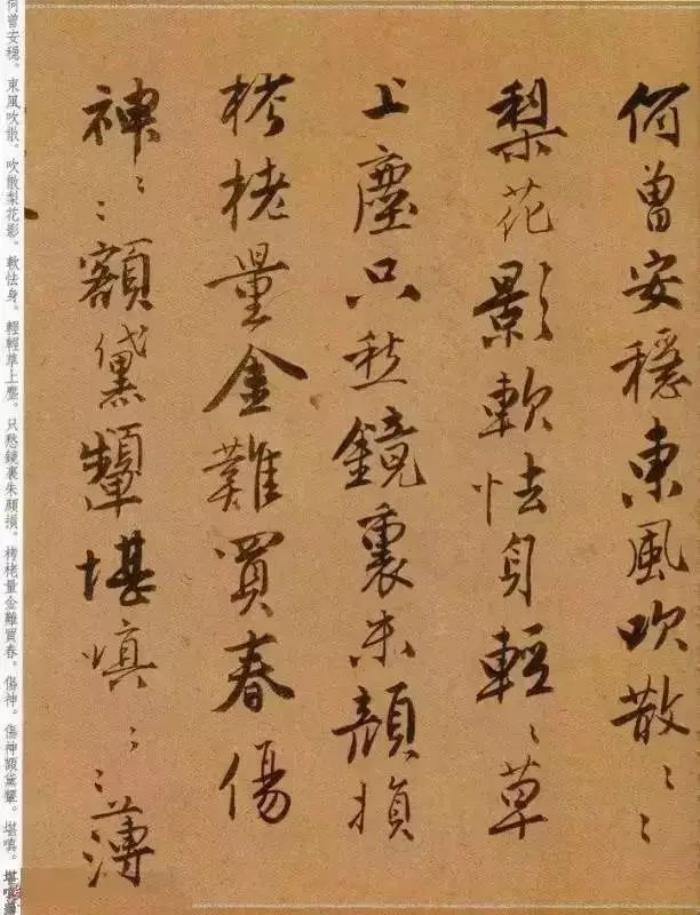 何曾安穩東風吹散〻〻
梨花影軟怯身輕〻草
上塵只愁鏡裏朱顏損
栲栳量金難買春傷
神〻〻額黛顰堪嗔〻〻薄
何曾安穩。東風吹散。吹散梨花影。軟怯身。輕輕草上塵。只愁鏡裏朱顏損。栲栳量金難買春。傷神。傷神額黛顰。堪嗔。堪嗔薄